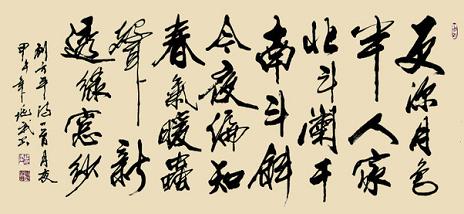 更深月色
半人家
北斗闌干
南斗斜
今夜偏知
春氣暖蟲
聲新
透綠窗紗
劉方平詩一首月夜
甲午年